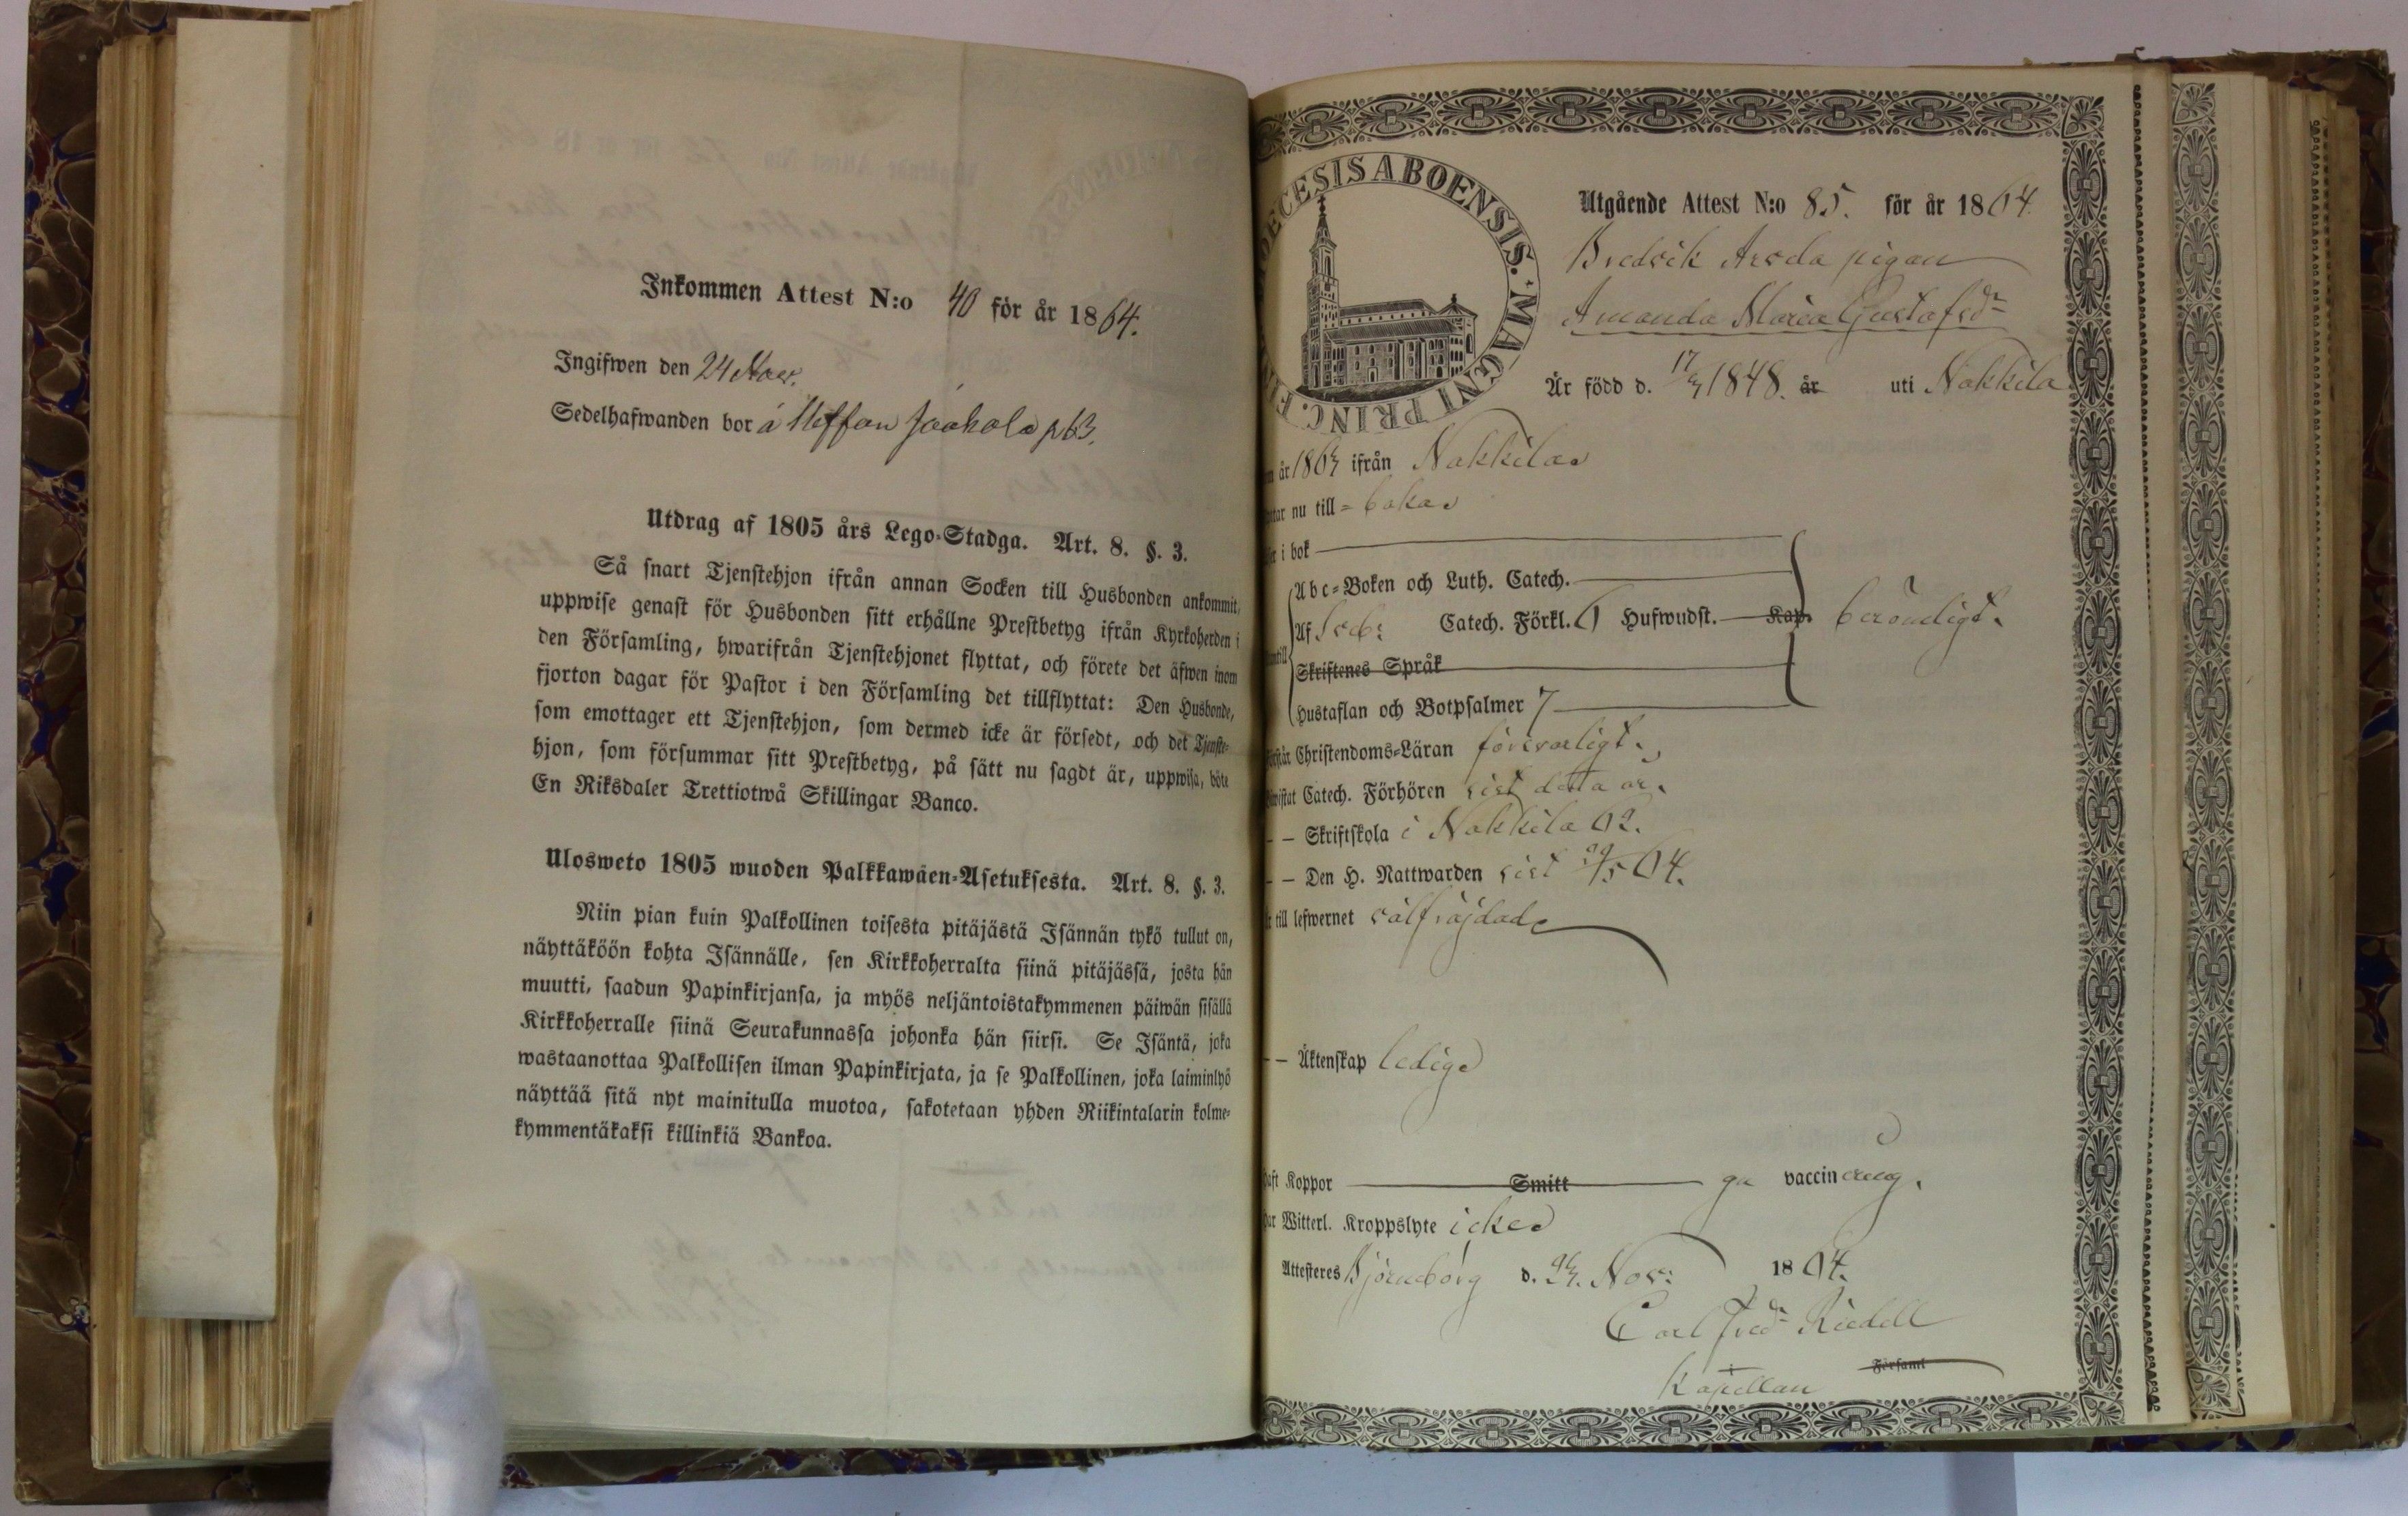 Inkommen Attest N:o 40 för år 1864.
Ingifwen den 24 Nov.
Sedelhafwanden bor å Uffan Jaakola p 63.
Utdrag af 1805 års Lego-Stadga. Art. 8. §. 3.
Så snart Tjenstehjon ifrån annan Socken till Husbonden ankommit,
uppwise genast för Husbonden sitt erhållne Prestbetyg ifrån Kyrkoherden i
den Församling, hwarifrån Tjenstehjonet flyttat, och förete det äfwen inom
fjorton dagar för Pastor i den Församling det tillflyttat: Den Husbonde,
som emottager ett Tjenstehjon, som dermed icke är försedt, och det Tjenste-
hjon, som försummar sitt Prestbetyg, på sätt nu sagdt är, uppwisa, böte
En Riksdaler Trettiotwå Skillingar Banco.
Ulosweto 1805 wuoden Palkkawäen-Asetuksesta. Art. 8. §. 3.
Niin pian kuin Palkollinen toisesta pitäjästä Isännän tykö tullut on,
näyttäköön kohta Isännälle, sen Kirkkoherralta siinä pitäjässä, josta hän
muutti, saadun Papinkirjansa, ja myös neljäntoistakymmenen päiwän sisällä
Kirkkoherralle siinä Seurakunnassa johonka hän siirsi. Se Isäntä, joka
wastaanottaa Palkollisen ilman Papinkirjata, ja se Palkollinen, joka laiminlyö
näyttää sitä nyt mainitulla muotoa, sakotetaan yhden Riikintalarin kolme-
kymmentäkaksi killinkiä Bankoa.
OECESIS ABOENSIS. MAGNI PRINC. FI
Utgående Attest N:o 85. för år 1864.
Bredvik Arvela pigan
Amanda Maria Gustafsdr
Är född d. 17/9 1848. år uti Nakkila
år 1863 ifrån Nakkila
nu till-baka
i bok
Abc-Boken och Luth. Catech.
Af Sveb: Catech. Förkl. 6 Hufwudst. Kap. berömligt.
Skriftenes Språk
Hustaflan och Botpsalmer 7
Christendoms-Läran försvarligt.
Catech. Förhören sist detta år.
– – Skriftskola i Nakkila 62.
– – Den H. Nattwarden sist 29/5 64.
till lefwernet välfräjdad
– – Äktenskap ledig
Koppor Smitt ga vaccinering.
Witterl. Kroppslyte icke
Attesteres Björneborg d. 23. Nov: 1864.
Carl Fredr Riedell
Kapellan Församl